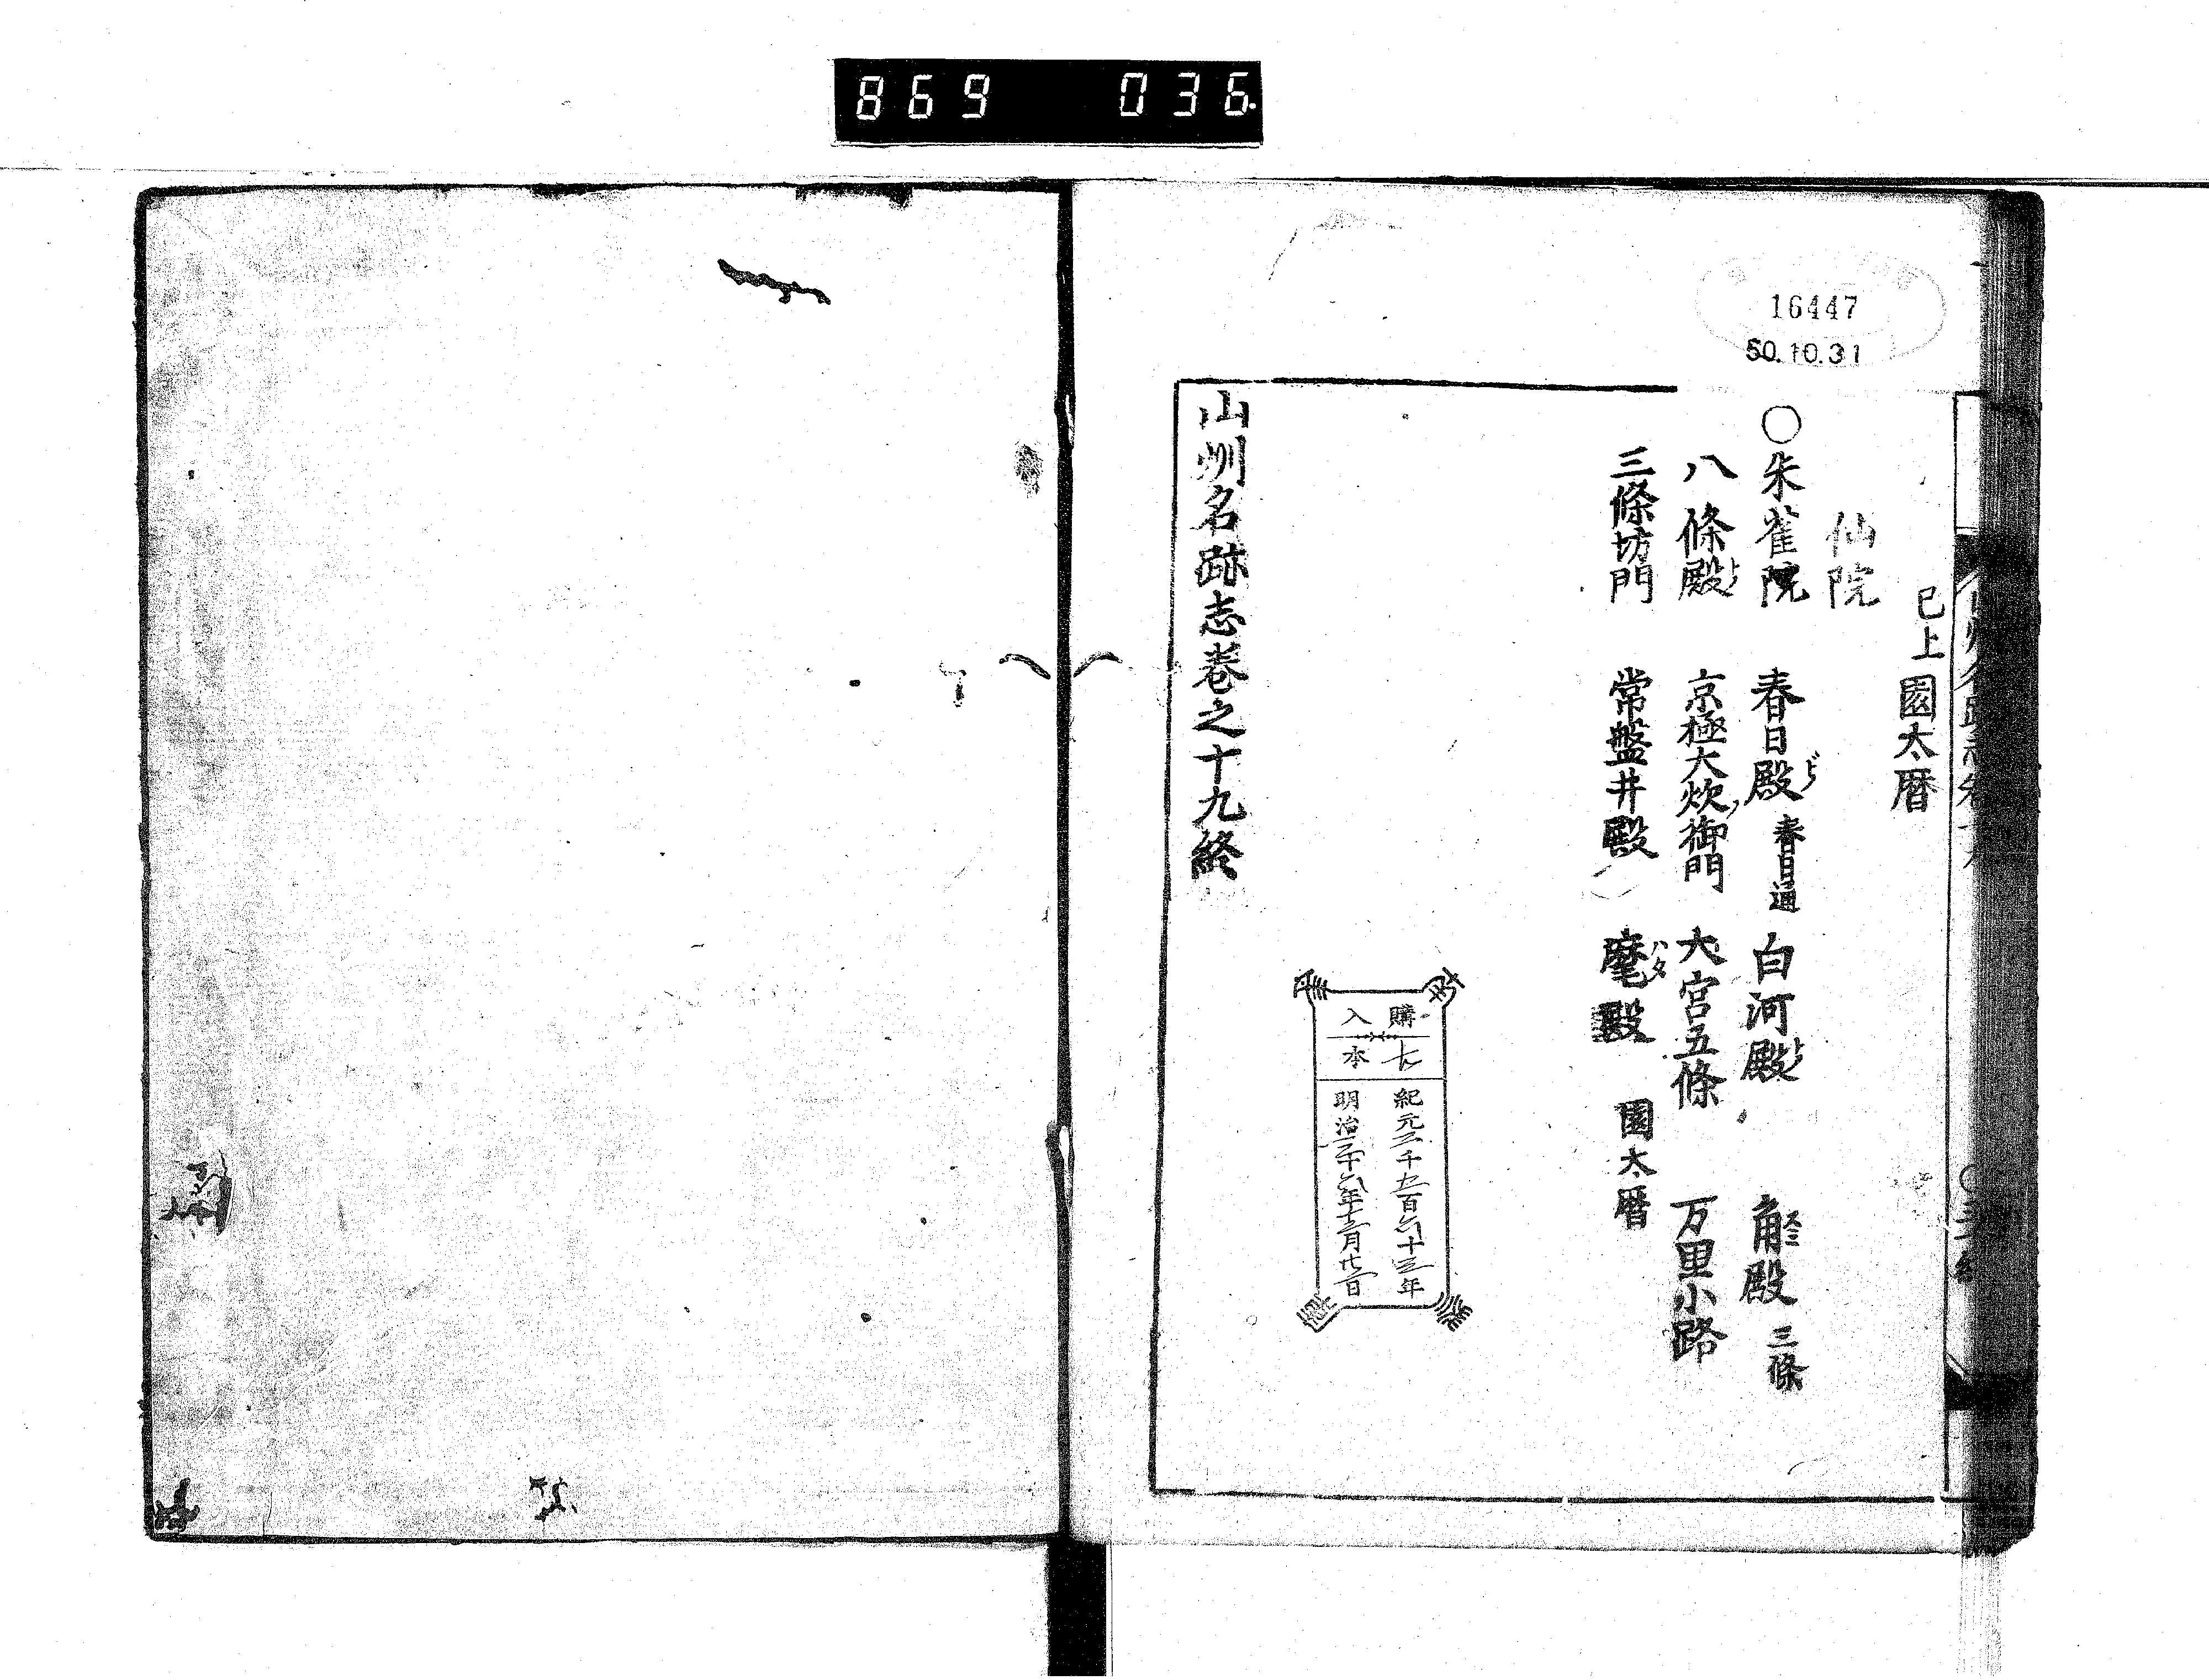 869 036
16447
50.10.31
已上園太暦
仙院
〇朱雀院 春日殿 春日通 白河殿 角殿 三條
八條殿 京極大炊御門 大宮五條 万里小路
三條坊門 常盤井殿 麾殿 園太暦
購入
本
紀元二千五百六十三年
明治三十六年十二月廿一日
山州名跡志巻之十九終